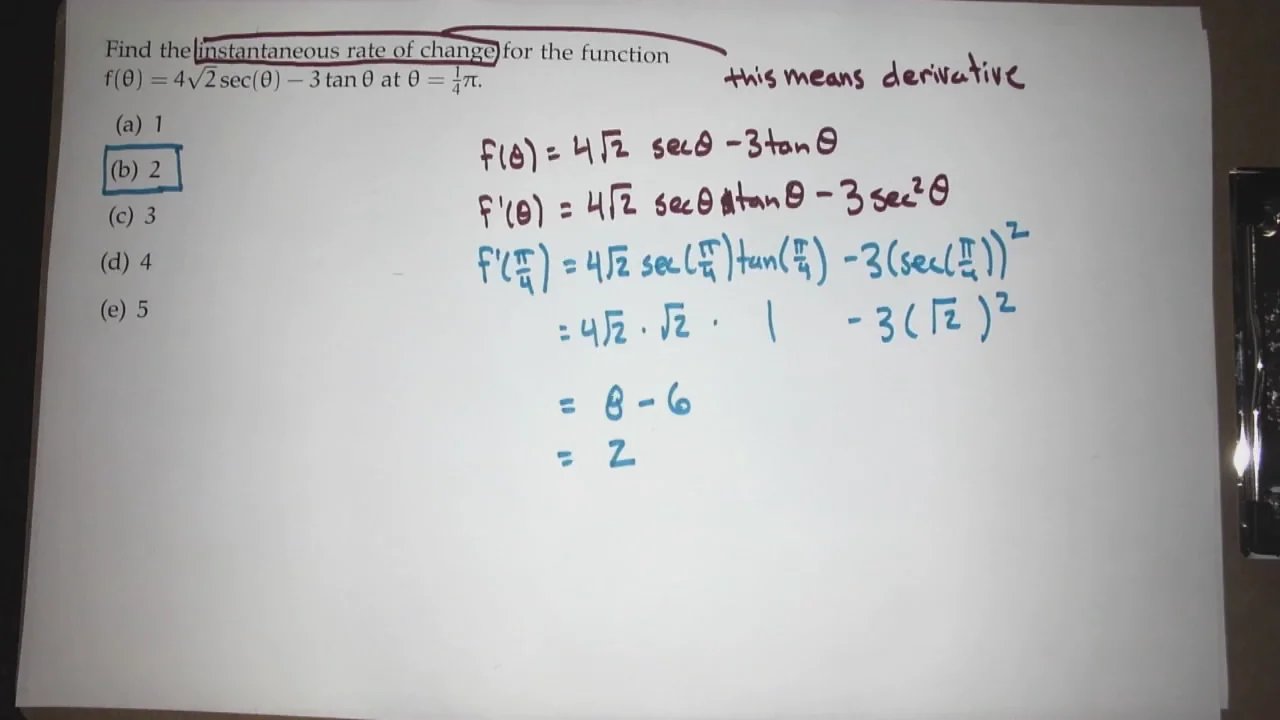 Find the instantaneous rate of change for the function
f(θ) = 4√2 sec(θ) − 3 tan θ at θ = ¼π.
this means derivative
(a) 1
(b) 2
(c) 3
(d) 4
(e) 5
f(θ) = 4√2 secθ − 3tanθ
f'(θ) = 4√2 secθ tanθ − 3sec²θ
f'(π/4) = 4√2 sec(π/4)tan(π/4) − 3(sec(π/4))²
= 4√2 · √2 · 1 − 3(√2)²
= 8 − 6
= 2